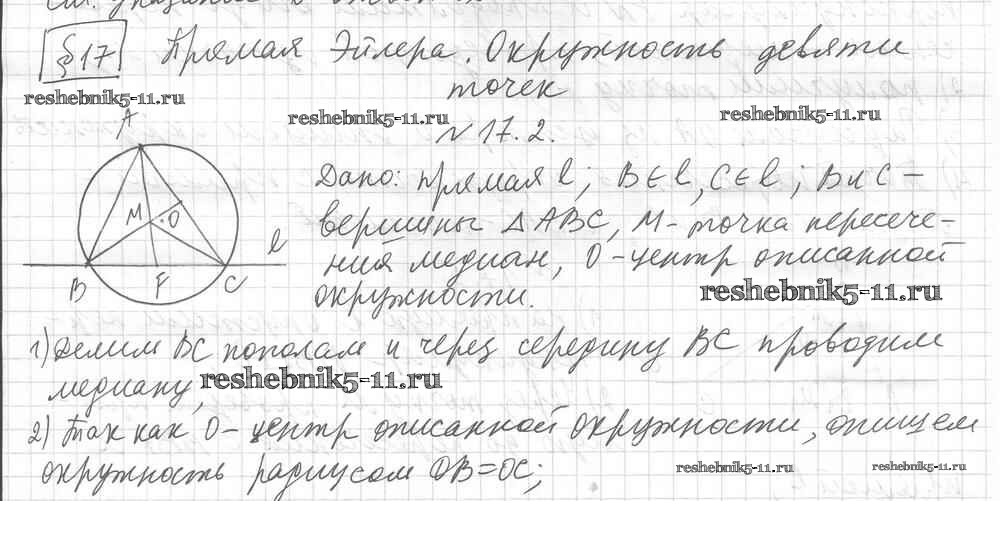 §17 Прямая Эйлера. Окружность девяти
точек
reshebnik5-11.ru
reshebnik5-11.ru
reshebnik5-11.ru
№ 17.2.
A
M
O
l
B
F
C
Дано: прямая l; B∈l, C∈l; B и C –
вершины △ABC, M – точка пересече-
ния медиан, O – центр описанной
окружности.
reshebnik5-11.ru
1) Делим BC пополам и через середину BC проводим
медиану,
reshebnik5-11.ru
2) Так как O – центр описанной окружности, опишем
окружность радиусом OB=OC;
reshebnik5-11.ru
reshebnik5-11.ru